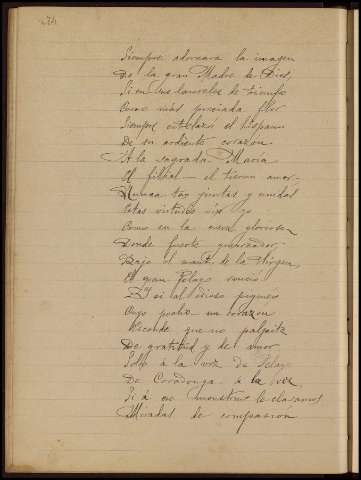 Siempre adornara la imagen
De la gran Madre de Dios,
Si en sus laureles de triunfo
Como mas preciada flor
Siempre el hispano
De su ardiente corazon
A la sagrada Maria
El filial — el tierno amor —
Nunca tan juntas y unidas
Estas virtudes vio yo
Como en la cueva gloriosa
Donde fuerte guerreador,
Bajo el manto de la Virgen,
El gran Pelayo venció
Y si al odioso
Cuyo pecho un corazon
Esconde que no palpita
De gratitud y de amor
Solo á la voz de Pelayo
De Covadonga á la voz,
Si á ese monstruo le clavamos
Miradas de compasion